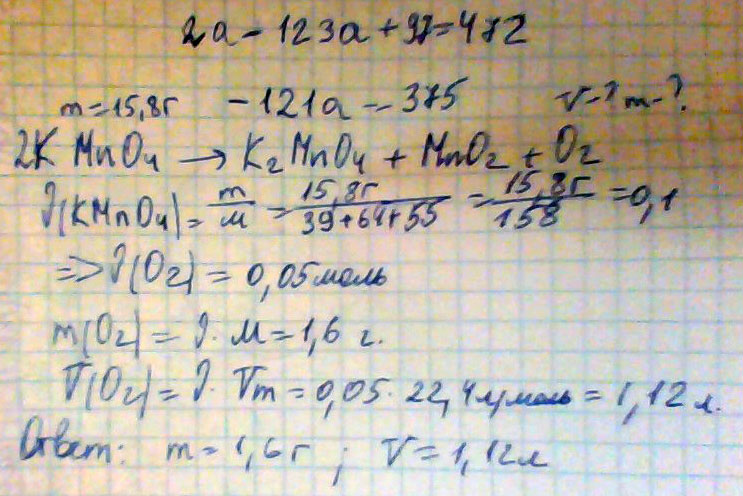 2a - 123a + 97 = 472
m = 15,8г   -121a = 375   V - ? m - ?
2KMnO₄ → K₂MnO₄ + MnO₂ + O₂
ν(KMnO₄) = m/M = 15,8г/39+64+55 = 15,8г/158 = 0,1
=> ν(O₂) = 0,05 моль
m(O₂) = ν · M = 1,6 г.
V(O₂) = ν · Vm = 0,05 · 22,4 л/моль = 1,12 л.
Ответ: m = 1,6 г ; V = 1,12л